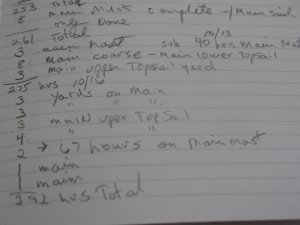 253 Total
8 main Mast complete w/ main Sail
only Done
261 Total 10/13
3 main Mast sub 40 hrs Main Mast
8 main coarse - main lower topsail
3 main upper Topsail yard
275 hrs 10/16
3 yards on main
3 " " "
3 main uper TopSail
4
2 → 67 hours on Main Mast
1 main
1 main
292 hrs Total